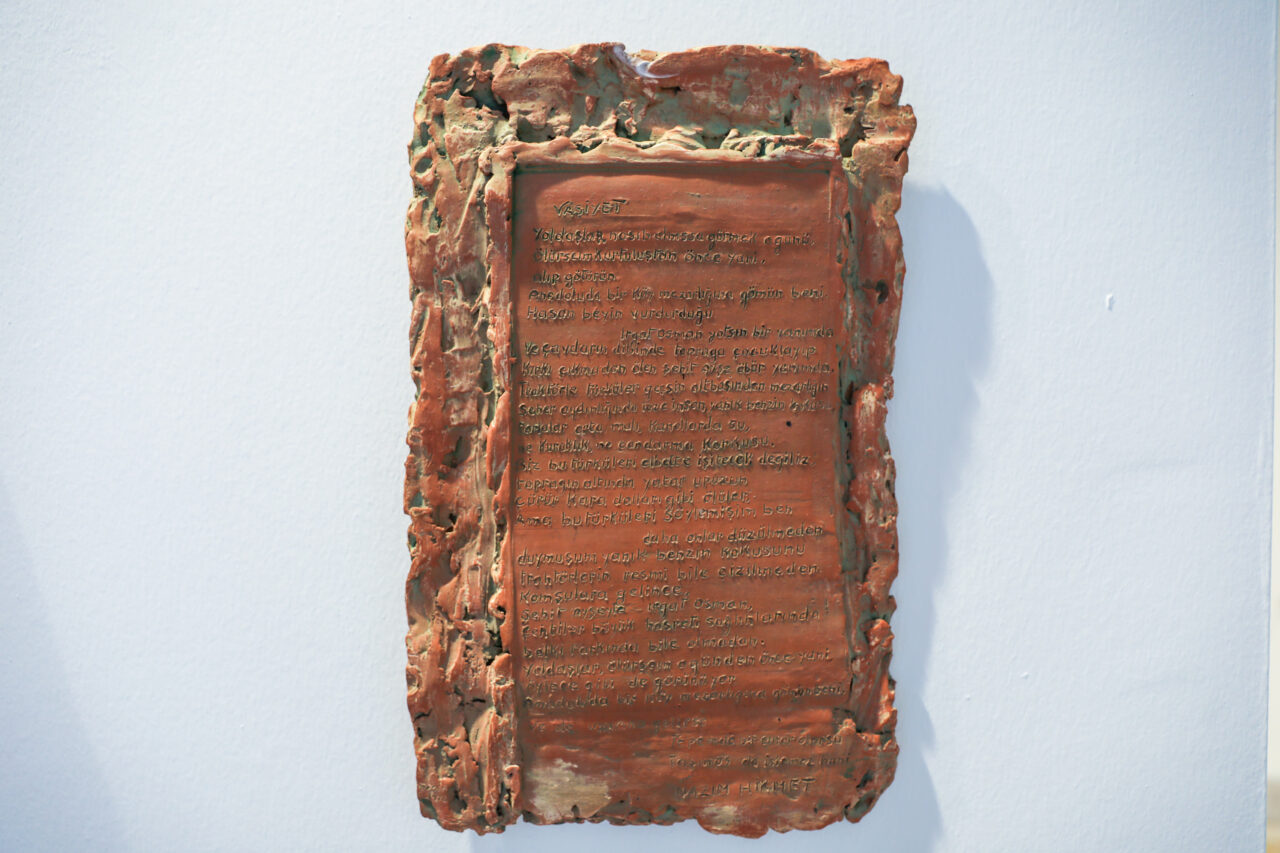 VASİYET
Yoldaşlar, nasip olmazsa görmek o günü,
Ölürsem kurtuluştan önce yani,
alıp götürün
Anadoluda bir köy mezarlığına gömün beni.
Hasan beyin vurdurduğu
ırgat Osman yatsın bir yanımda
Ve çavdarın dibinde toprağa çocuklayıp
Kırkı çıkmadan ölen şehit Ayşe öbür yanımda.
Traktörle türküler geçsin altbaşından mezarlığın
Seher aydınlığında insan, yanık benzin kokusu
tarlalar orta malı, kanallarda su,
ne kuraklık, ne candarma korkusu.
Biz bu türküleri elbette işitecek değiliz
toprağın altında yatar upuzun
çürür kara dallar gibi ölüler.
Ama bu türküleri söylemişim ben
daha onlar düzülmeden
duymuşum yanık benzin kokusunu
traktörlerin resmi bile çizilmeden.
Komşulara gelince,
Şehit Ayşeyle - ırgat Osman,
çektiler büyük hasreti sağlıklarında
belki farkında bile olmadan.
Yoldaşlar, ölürsem o günden önce yani
öylece gibi de görünüyor
Anadoluda bir köy mezarlığına gömün beni.
NAZIM HİKMET